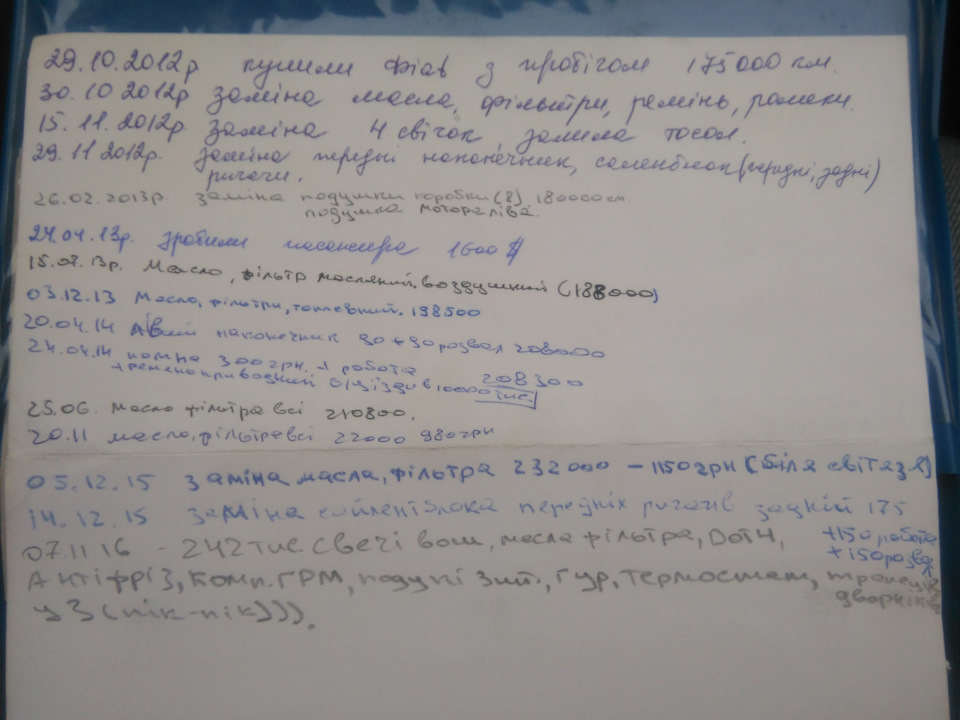 29.10.2012р купили фіат з пробігом 175000 км.
30.10 2012р заміна масла, фільтри, ремінь, ролики.
15.11.2012р заміна 4 свічок залила тосол.
29.11 2012р. заміна передні наконечник, саленблок (передні, задні)
ричаги.
26.02.2013р заміна подушки коробки (8). 180000 км
подушка мотора ліва.
24.04.13р. зробили пасажира 1600 $
15.08.13р. Масло, фільтр масляний. воздушний (188000)
03.12.13 Масло, фільтри, топлевний. 198500
20.04.14 лівий наконечник 90 + 90 розвал 208000
24.04.14 помпа 300 грн. + робота 208 300
+ремень приводний б/у їздив 10000 тис.
25.06. Масло фільтра всі 210800.
20.11 масло, фільтревсі 22000 980грн
05.12.15 Заміна масла, фільтра 232000 – 1150грн (біля світязя)
14.12.15 Заміна сайлентблока передніх ричагів задній 175
+150 робота
+150розвал
07.11.16 - 242 тис свечі бош, масла фільтра, DOT4,
Антіфріз, Комп. ГРМ, подушкі Зшт., Гур, Термостат, трапеція
дворніків
УЗ (пік-пік))).